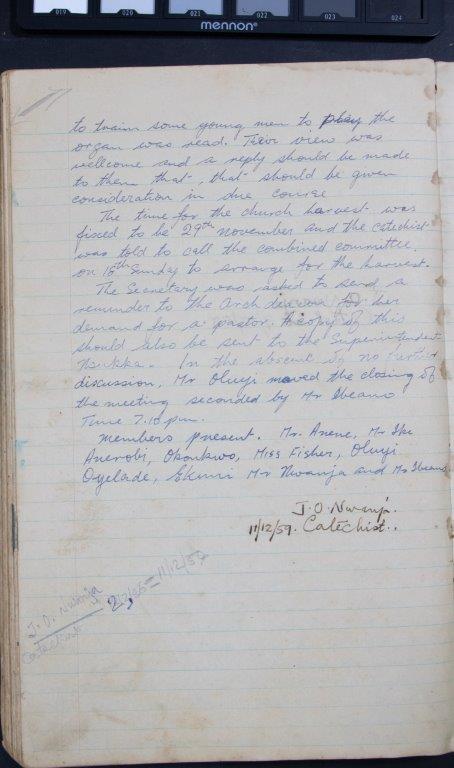 019 020 021 022 023 024
mennon
to train some young men to play the
organ was read. Their view was
wellcome and a reply should be made
to them that, that should be given
consideration in due course
The time for the church harvest was
fixed to be 29th November and the catechist
was told to call the combined committee
on 18th Sunday to arrange for the harvest.
The Secretary was asked to send a
reminder to the Arch deacon for her
demand for a pastor. A copy of this
should also be sent to the Superintendent
Nsukka. In the absence of no further
discussion, Mr Oluyi moved the closing of
the meeting seconded by Mr Ibeano
Time 7.10 pm.
members present. Mr. Anene, Mr Ike
Anerobi, Okonkwo, Miss Fisher, Oluyi
Oyelade, Ekuni Mr Nwanja and Mr Ibeano
J. O. Nwanja.
11/12/59. Catechist..
J. O. Nwanja
11/12/59
Catechist